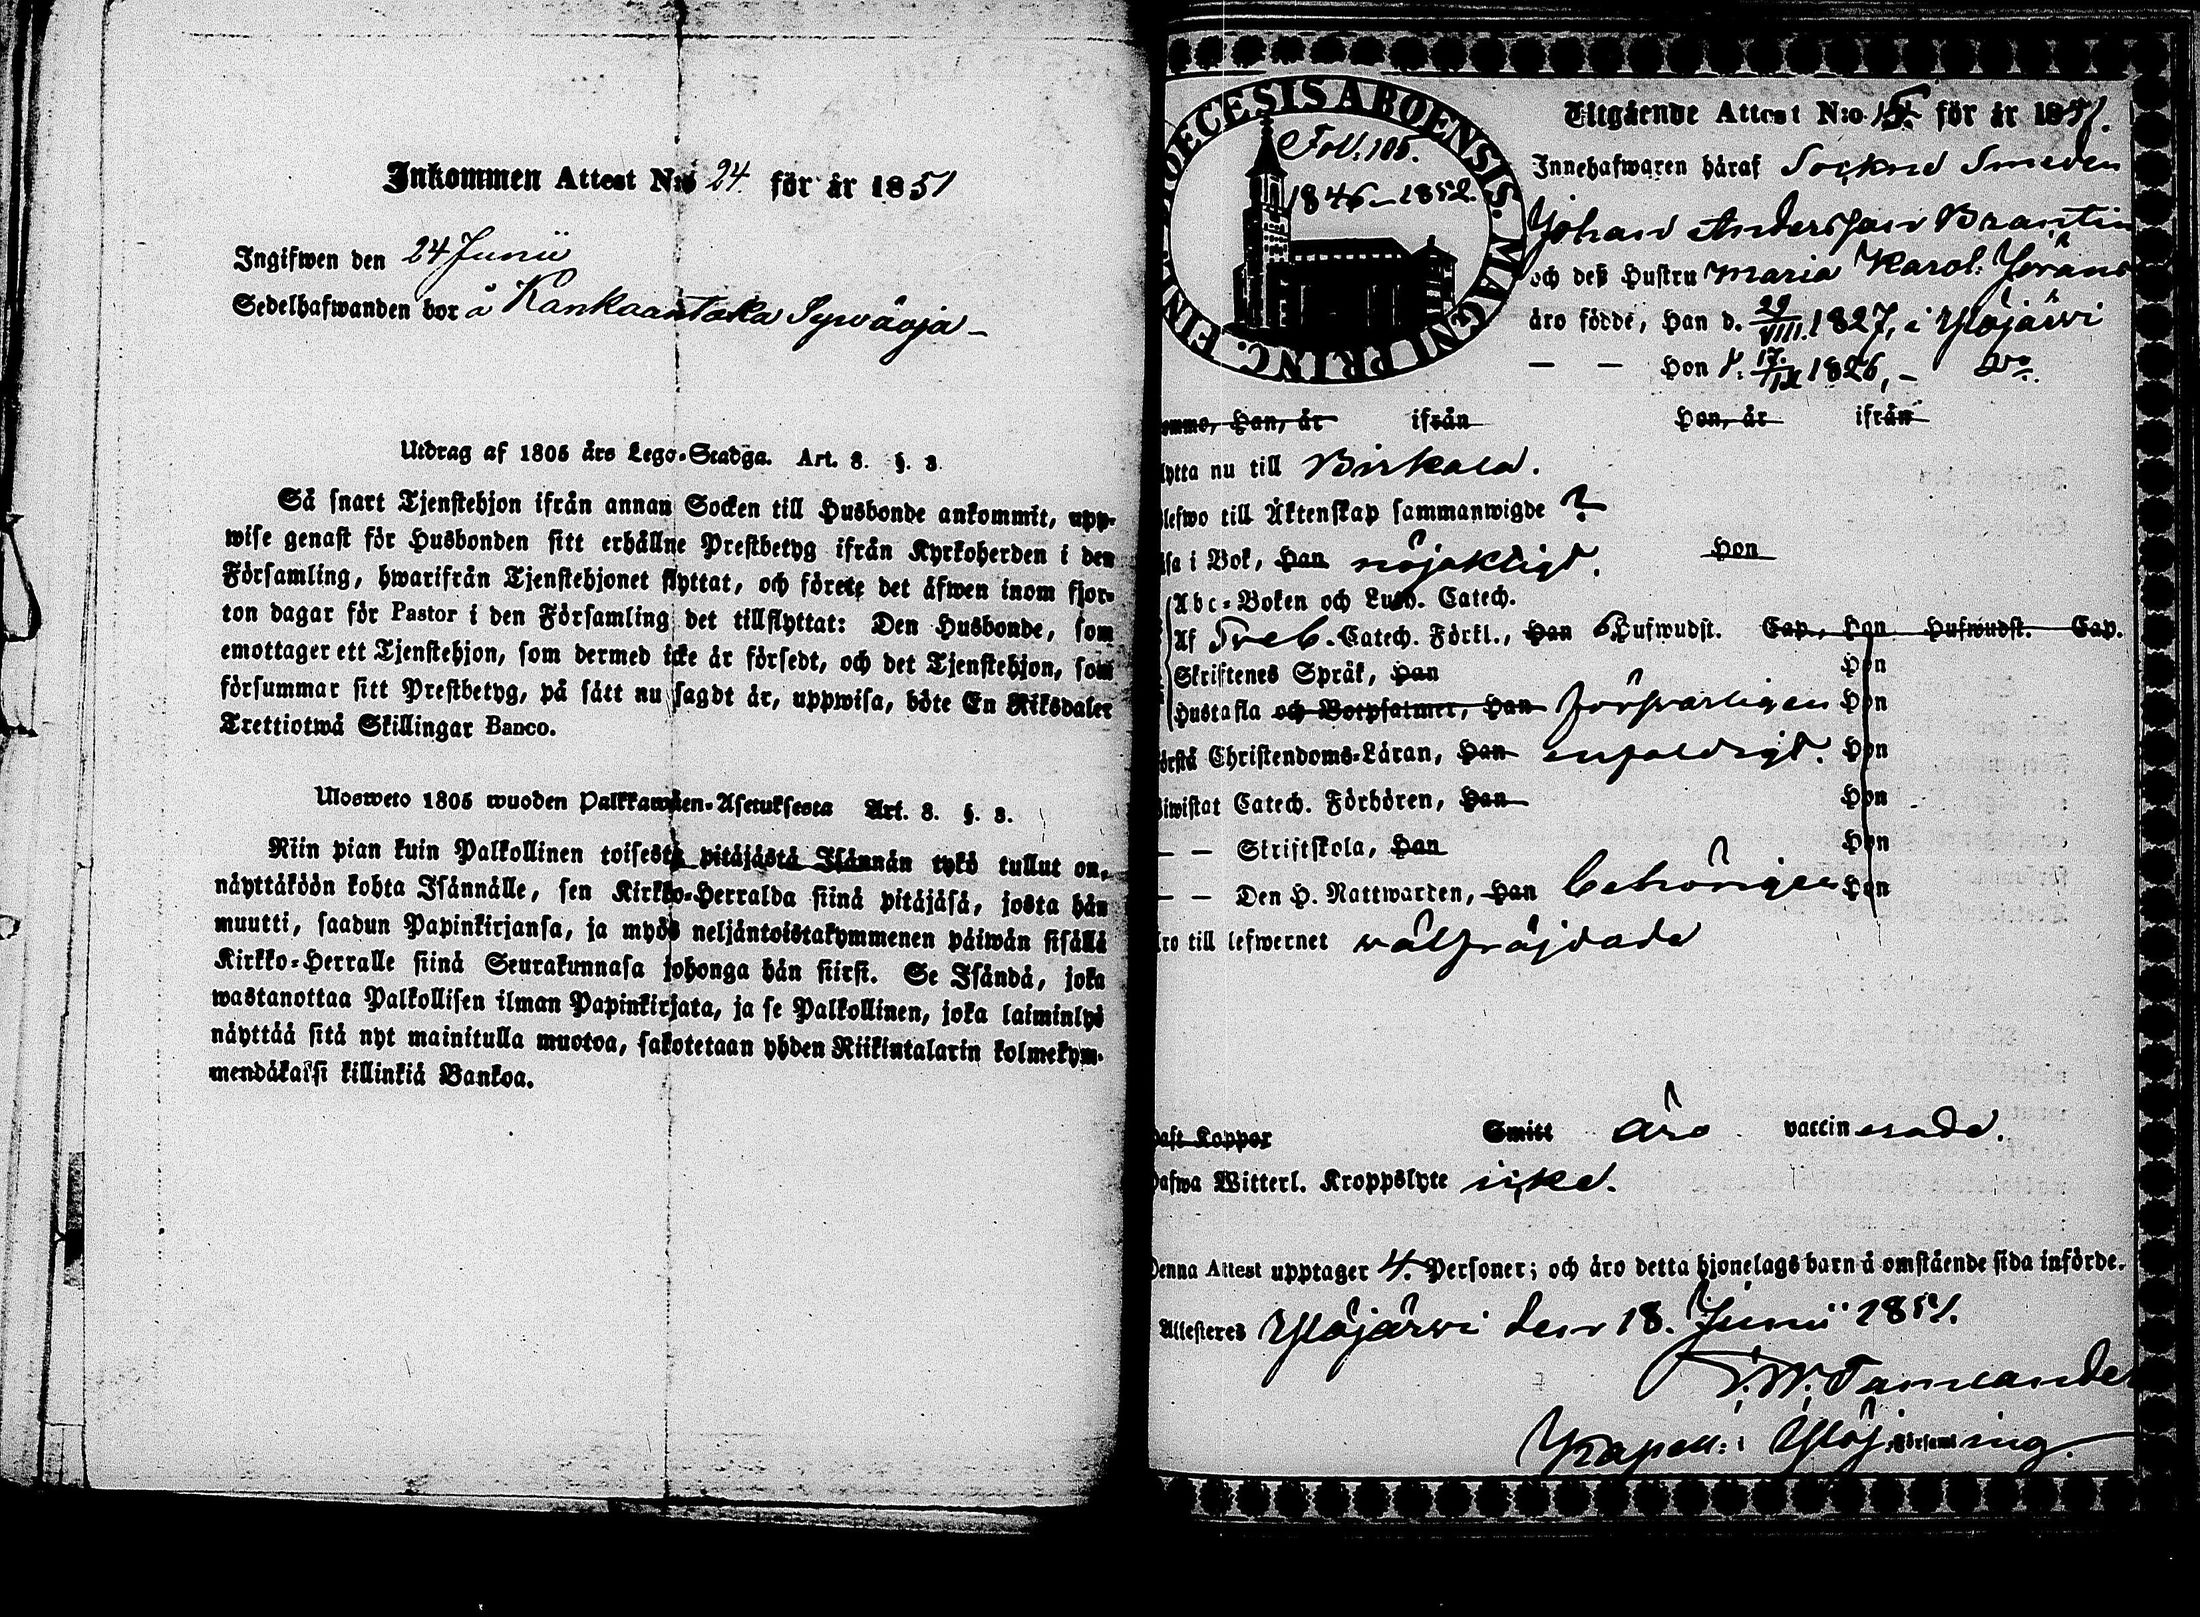 Inkommen Attest N:o 24 för år 1851
Ingifwen den 24 Junii
Sedelhafwanden bor å Kankaantaka Sywäoja
Utdrag af 1805 års Lego-Stadga. Art. 8. §. 3.
Så snart Tjenstehjon ifrån annan Socken till Husbonde ankommit, upp-
wise genast för Husbonden sitt erhållne Prestbetyg ifrån Kyrkoherden i den
Församling, hwarifrån Tjenstehjonet flyttat, och förete det äfwen inom fjor-
ton dagar för Pastor i den Församling det tillflyttat: Den Husbonde, som
emottager ett Tjenstehjon, som dermed icke är försedt, och det Tjenstehjon, som
försummar sitt Prestbetyg, på sätt nu sagdt är, uppwisa, böte En Riksdaler
Trettiotwå Skillingar Banco.
Ulosweto 1805 wuoden Palkkawäen-Asetuksesta Art. 8. §. 3.
Niin pian kuin Palkollinen toisesta pitäjästä Isännän tykö tullut on,
näyttäköön kohta Isännälle, sen Kirkko-Herralda siinä pitäjäsä, josta hän
muutti, saadun Papinkirjansa, ja myös neljäntoistakymmenen päiwän sisällä
Kirkko-Herralle siinä Seurakunnasa johonga hän siirsi. Se Isändä, joka
wastanottaa Palkollisen ilman Papinkirjata, ja se Palkollinen, joka laiminlyö
näyttää sitä nyt mainitulla muotoa, sakotetaan yhden Riikintalarin kolmekym-
mendäkaksi killinkiä Bankoa.
DIOECESIS ABOENSIS. MAGNI PRINC. FINL.
Fol. 105.
1846-1852.
Utgående Attest N:o 15. för år 1851.
Innehafwaren häraf Sockne Smeden
Johan Andersson Brantin
och deß Hustru Maria Karol: Jöräns
äro födde, Han d. 29/VIII. 1827, i Ylöjärvi
— — Hon d. 17./IX 1826, - do.
omme, Han, år ifrån Hon, år ifrån
lytta nu till Birkala.
blefwo till Äktenskap sammanwigde ?
äsa i Bok, Han nöjaktligt. Hon
Abc-Boken och Luth. Catech.
Af Treb. Catech. Förkl., Han 6 Hufwudst. Cap., Hon Hufwudst. Cap.
Skriftenes Språk, Han Hon
Hustafla och Botpsalmer, Han försvarligen Hon
örstå Christendoms-Läran, Han enfaldigt. Hon
Biwistat Catech. Förhören, Han Hon
— — Skriftskola, Han Hon
— — Den H. Nattwarden, Han behörigen Hon
äro till lefwernet wälfräjdade
Haft Koppor Smitt äro vaccinerade.
Hafwa Witterl. Kroppslyte icke.
Denna Attest upptager 4. Personer; och äro detta hjonelags barn å omstående sida införde.
Attesteres Ylöjärvi den 18. Junii 1851.
Kapell: i Ylöj. Församling.